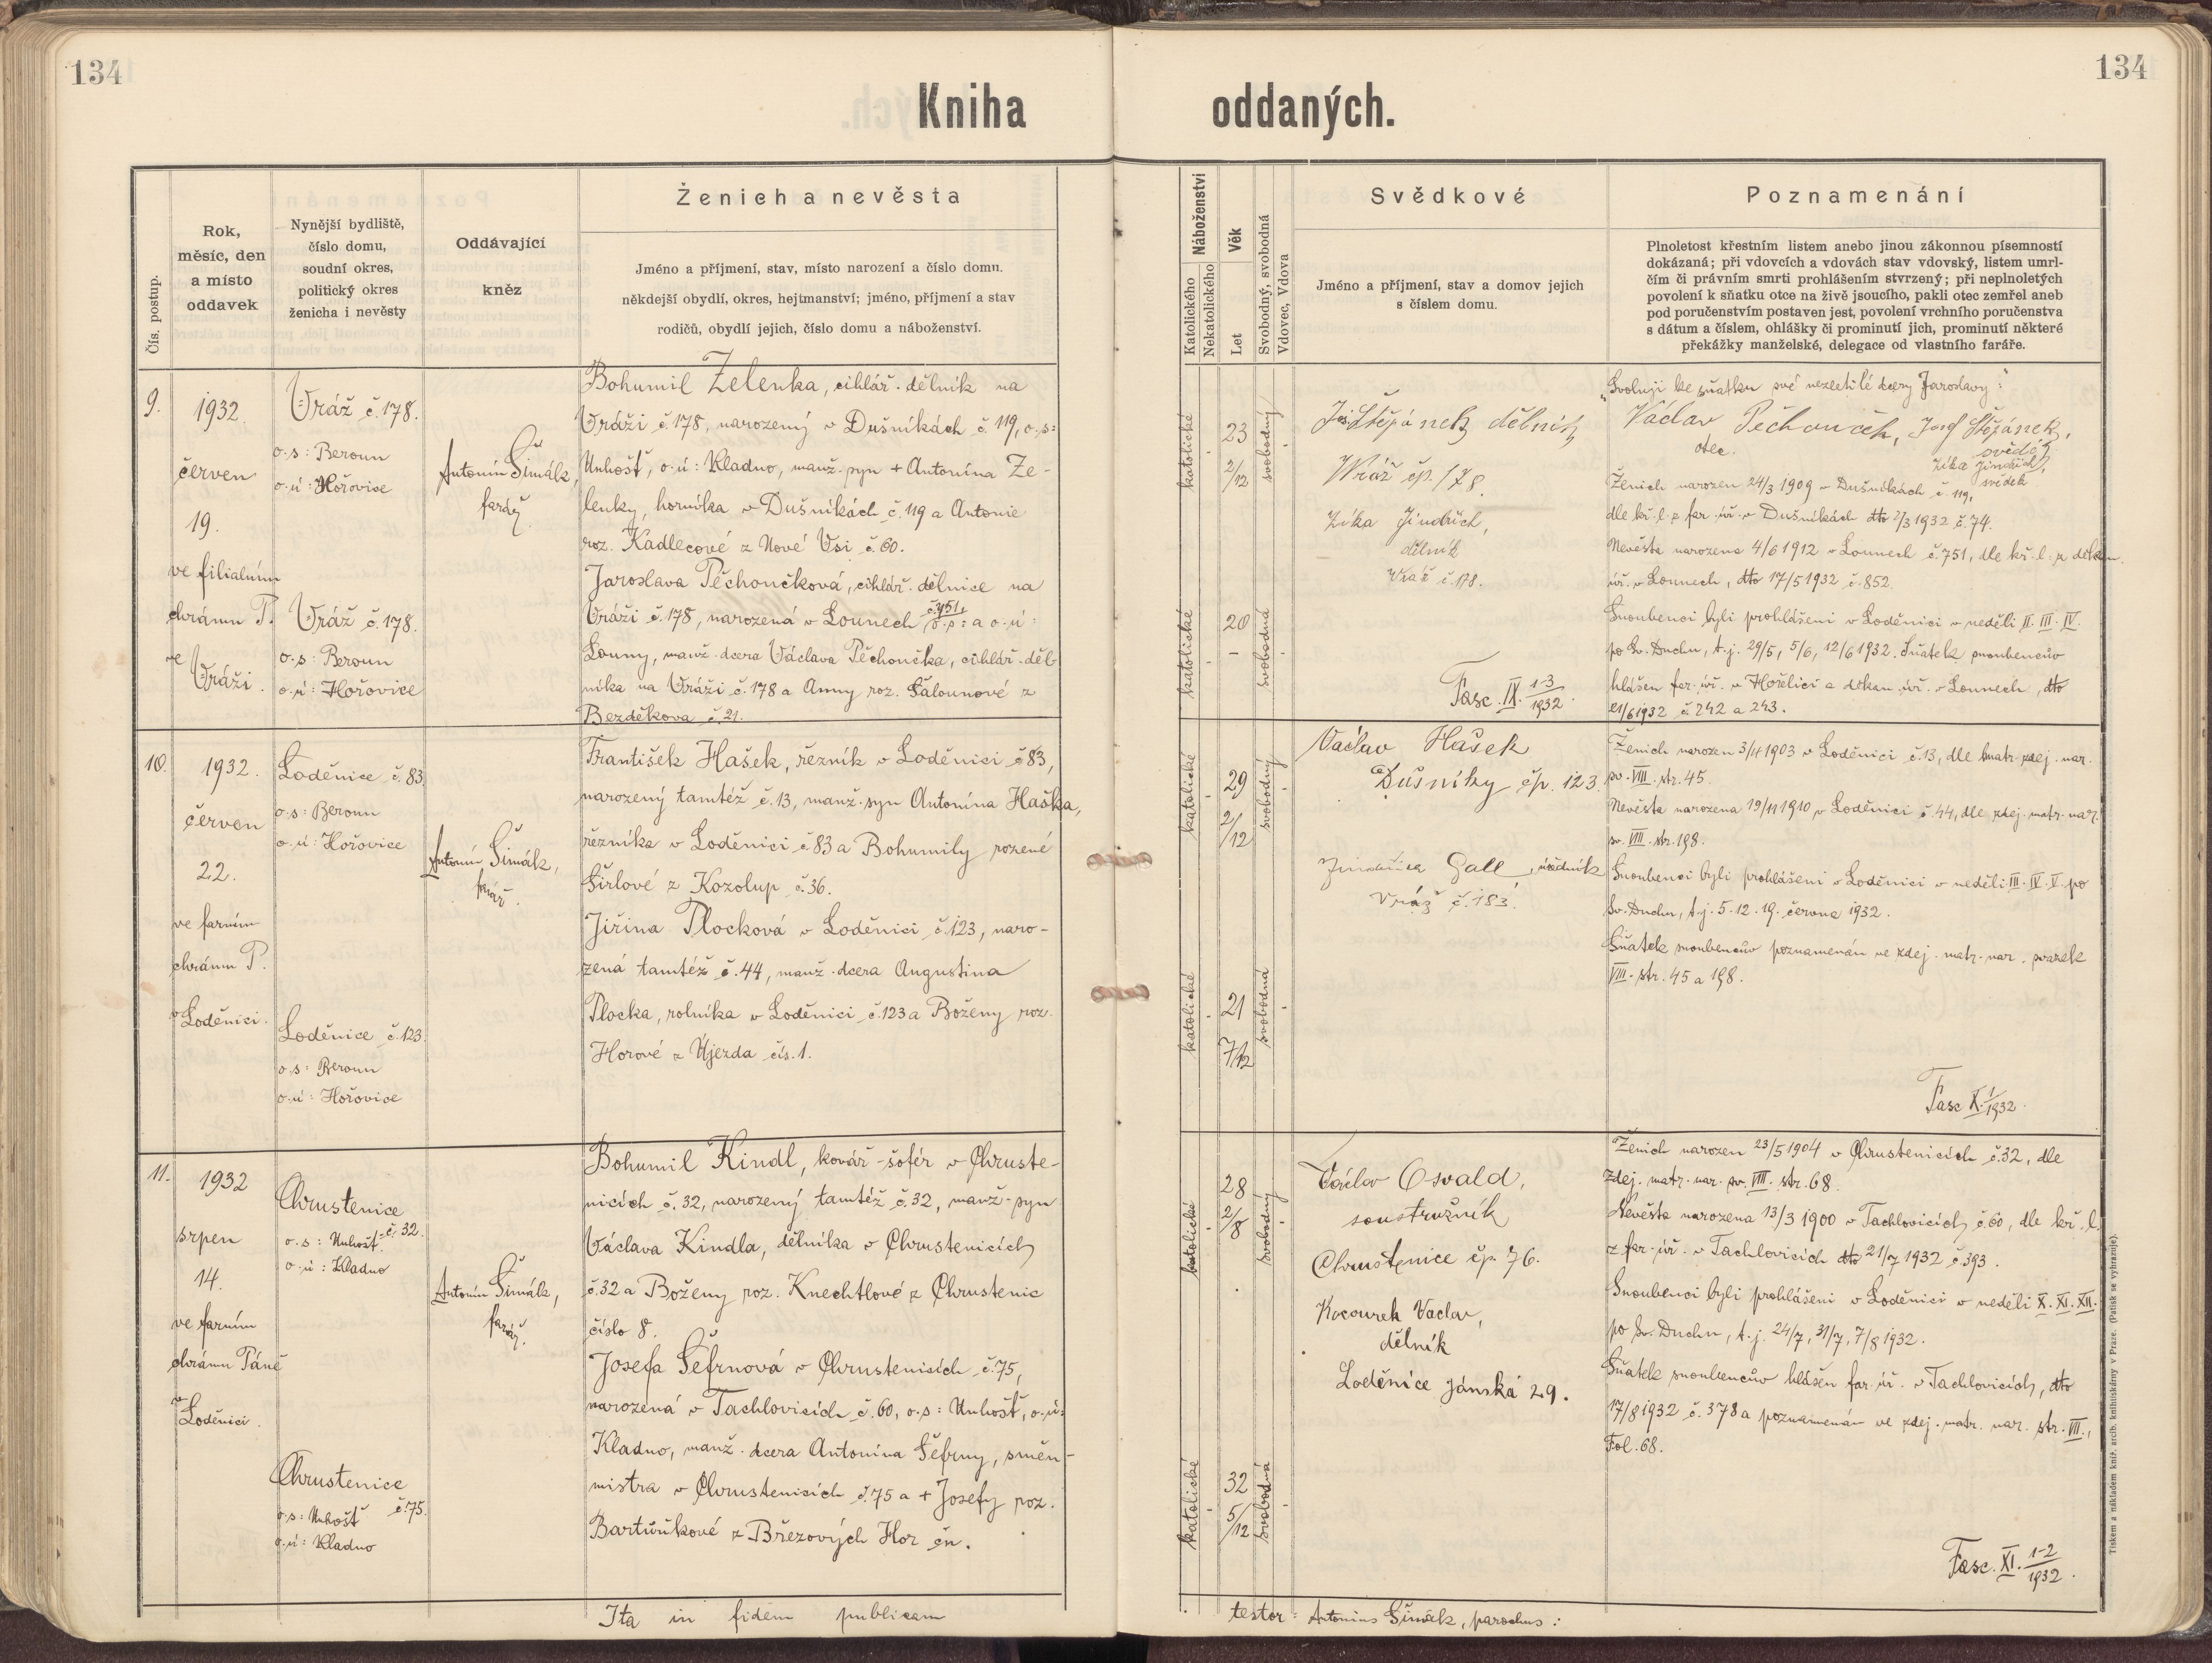 134
134
Kniha oddaných.
Čís. postup.
Rok,
měsíc, den
a místo
oddavek
Nynější bydliště,
číslo domu,
soudní okres,
politický okres
ženicha i nevěsty
Oddávající
kněz
Ženich a nevěsta
Jméno a příjmení, stav, místo narození a číslo domu.
někdejší obydlí, okres, hejtmanství; jméno, příjmení a stav
rodičů, obydlí jejich, číslo domu a náboženství.
Náboženství
Katolického
Nekatolického
Věk
Let
Svobodný, svobodná
Vdovec, Vdova
Svědkové
Jméno a příjmení, stav a domov jejich
s číslem domu.
Poznamenání
Plnoletost křestním listem anebo jinou zákonnou písemností
dokázaná; při vdovcích a vdovách stav vdovský, listem umrl-
čím či právním smrti prohlášením stvrzený; při neplnoletých
povolení k sňatku otce na živě jsoucího, pakli otec zemřel aneb
pod poručenstvím postaven jest, povolení vrchního poručenstva
s dátum a číslem, ohlášky či prominutí jich, prominutí některé
překážky manželské, delegace od vlastního faráře.
9.
1932.
červen
19.
ve filialním
chrámu P.
ve
Vráži.
Vráž č. 178.
o.s: Beroun
o.ú: Hořovice
Vráž č. 178.
o.s: Beroun
o.ú: Hořovice
Antonín Šimák,
farář.
Bohumil Zelenka, cihlář. dělník na
Vráži č. 178, narozený v Dušníkách č. 119, o.s:
Unhošť, o.ú: Kladno, manž. syn + Antonína Ze-
lenky, horníka v Dušníkách č. 119 a Antonie
roz. Kadlecové z Nové Vsi č. 60.
Jaroslava Pěchoučková, cihlář. dělnice na
Vráži č. 178, narozená v Lounech č. 751, o.s: a o.ú:
Louny, manž. dcera Václava Pěchoučka, cihlář. děl-
níka na Vráži č. 178 a Anny roz. Šalounové z
Bezděkova č. 21.
katolické
23
2/12
svobodný
katolické
20
-
svobodná
Jos. Štěpánek dělník
Vráž čp. 178.
Zíka Jindřich,
dělník
Vráž č. 178.
Fasc. IX. 1-3/1932.
"Svoluji ke sňatku své nezletilé dcery Jaroslavy:"
Václav Pěchouček, Josef Štěpánek,
otec. svědek
Zíka Jindřich,
svědek
Ženich narozen 24/3 1909 v Dušníkách č. 119,
dle kř. l. z far. úř. v Dušníkách dto 2/3 1932 č. 74.
Nevěsta narozena 4/6 1912 v Lounech č. 751, dle kř. l. z děkan.
úř. v Lounech, dto 17/5 1932 č. 852.
Snoubenci byli prohlášeni v Loděnici v neděli II. III. IV.
po Sv. Duchu, t.j. 29/5, 5/6, 12/6 1932. Sňatek snoubencův
hlášen far. úř. v Hořelici a děkan. úř. v Lounech, dto
21/6 1932 č. 242 a 243.
10.
1932.
červen
22.
ve farním
chrámu P.
v Loděnici.
Loděnice č. 83.
o.s: Beroun
o.ú: Hořovice
Loděnice č. 123.
o.s: Beroun
o.ú: Hořovice
Antonín Šimák,
farář.
František Hašek, řezník v Loděnici č. 83,
narozený tamtéž č. 13, manž. syn Antonína Haška,
řezníka v Loděnici č. 83 a Bohumily rozené
Širlové z Kozolup č. 36.
Jiřina Plocková v Loděnici č. 123, naro-
zená tamtéž č. 44, manž. dcera Augustina
Plocka, rolníka v Loděnici č. 123 a Boženy roz.
Horové z Újezda čís. 1.
katolické
29
2/12
svobodný
katolické
21
7/12
svobodná
Václav Hašek
Dušníky čp. 123.
Gall, úředník
Vráž č. 183.
Ženich narozen 3/4 1903 v Loděnici č. 13, dle matr. zdej. nar.
sv. VIII. str. 45.
Nevěsta narozena 19/11 1910 v Loděnici č. 44, dle zdej. matr. nar.
sv. VIII. str. 198.
Snoubenci byli prohlášeni v Loděnici v neděli III. IV. V. po
Sv. Duchu, t.j. 5. 12. 19. června 1932.
Sňatek snoubencův poznamenán ve zdej. matr. nar. svazek
VIII. str. 45 a 198.
Fasc X. 1/1932.
11.
1932
srpen
14.
ve farním
chrámu Páně
v
Loděnici.
Chrustenice
č. 32.
o.s: Unhošť
o.ú: Kladno
Chrustenice
č. 75.
o.s: Unhošť
o.ú: Kladno
Antonín Šimák,
farář.
Bohumil Kindl, kovář-šofér v Chruste-
nicích č. 32, narozený tamtéž č. 32, manž. syn
Václava Kindla, dělníka v Chrustenicích
č. 32 a Boženy roz. Knechtlové z Chrustenic
číslo 8.
Josefa Šefrnová v Chrustenicích č. 75,
narozená v Tachlovicích č. 60, o.s: Unhošť, o.ú:
Kladno, manž. dcera Antonína Šefrny, směn-
mistra v Chrustenicích č. 75 a + Josefy roz.
Bartůňkové z Březových Hor čn.
katolické
28
2/8
svobodný
katolické
32
5/12
svobodná
Václav Osvald,
soustružník
Chrustenice čp. 76.
Kocourek Vaclav,
dělník
Loděnice Jánská 29.
Ženich narozen 23/5 1904 v Chrustenicích č. 32, dle
zdej. matr. nar. sv. VIII. str. 68.
Nevěsta narozena 13/3 1900 v Tachlovicích č. 60, dle kř. l.
z far. úř. v Tachlovicích dto 21/7 1932 č. 393.
Snoubenci byli prohlášeni v Loděnici v neděli X. XI. XII.
po Sv. Duchu, t.j. 24/7, 31/7, 7/8 1932.
Sňatek snoubencův hlášen far. úř. v Tachlovicích, dto
17/8 1932 č. 378 a poznamenán ve zdej. matr. nar. str. VIII.,
Fol. 68.
Fasc. XI. 1-2/1932.
Ita in fidem publicam
testor: Antonius Šimák, parochus:
Tiskem a nákladem kníž. arcib. knihtiskárny v Praze. (Patisk se vyhrazuje).